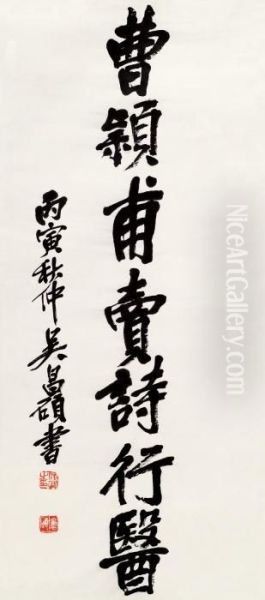 曹穎甫賣詩行醫
丙寅秋仲吳昌碩書
NiceArtGallery.com